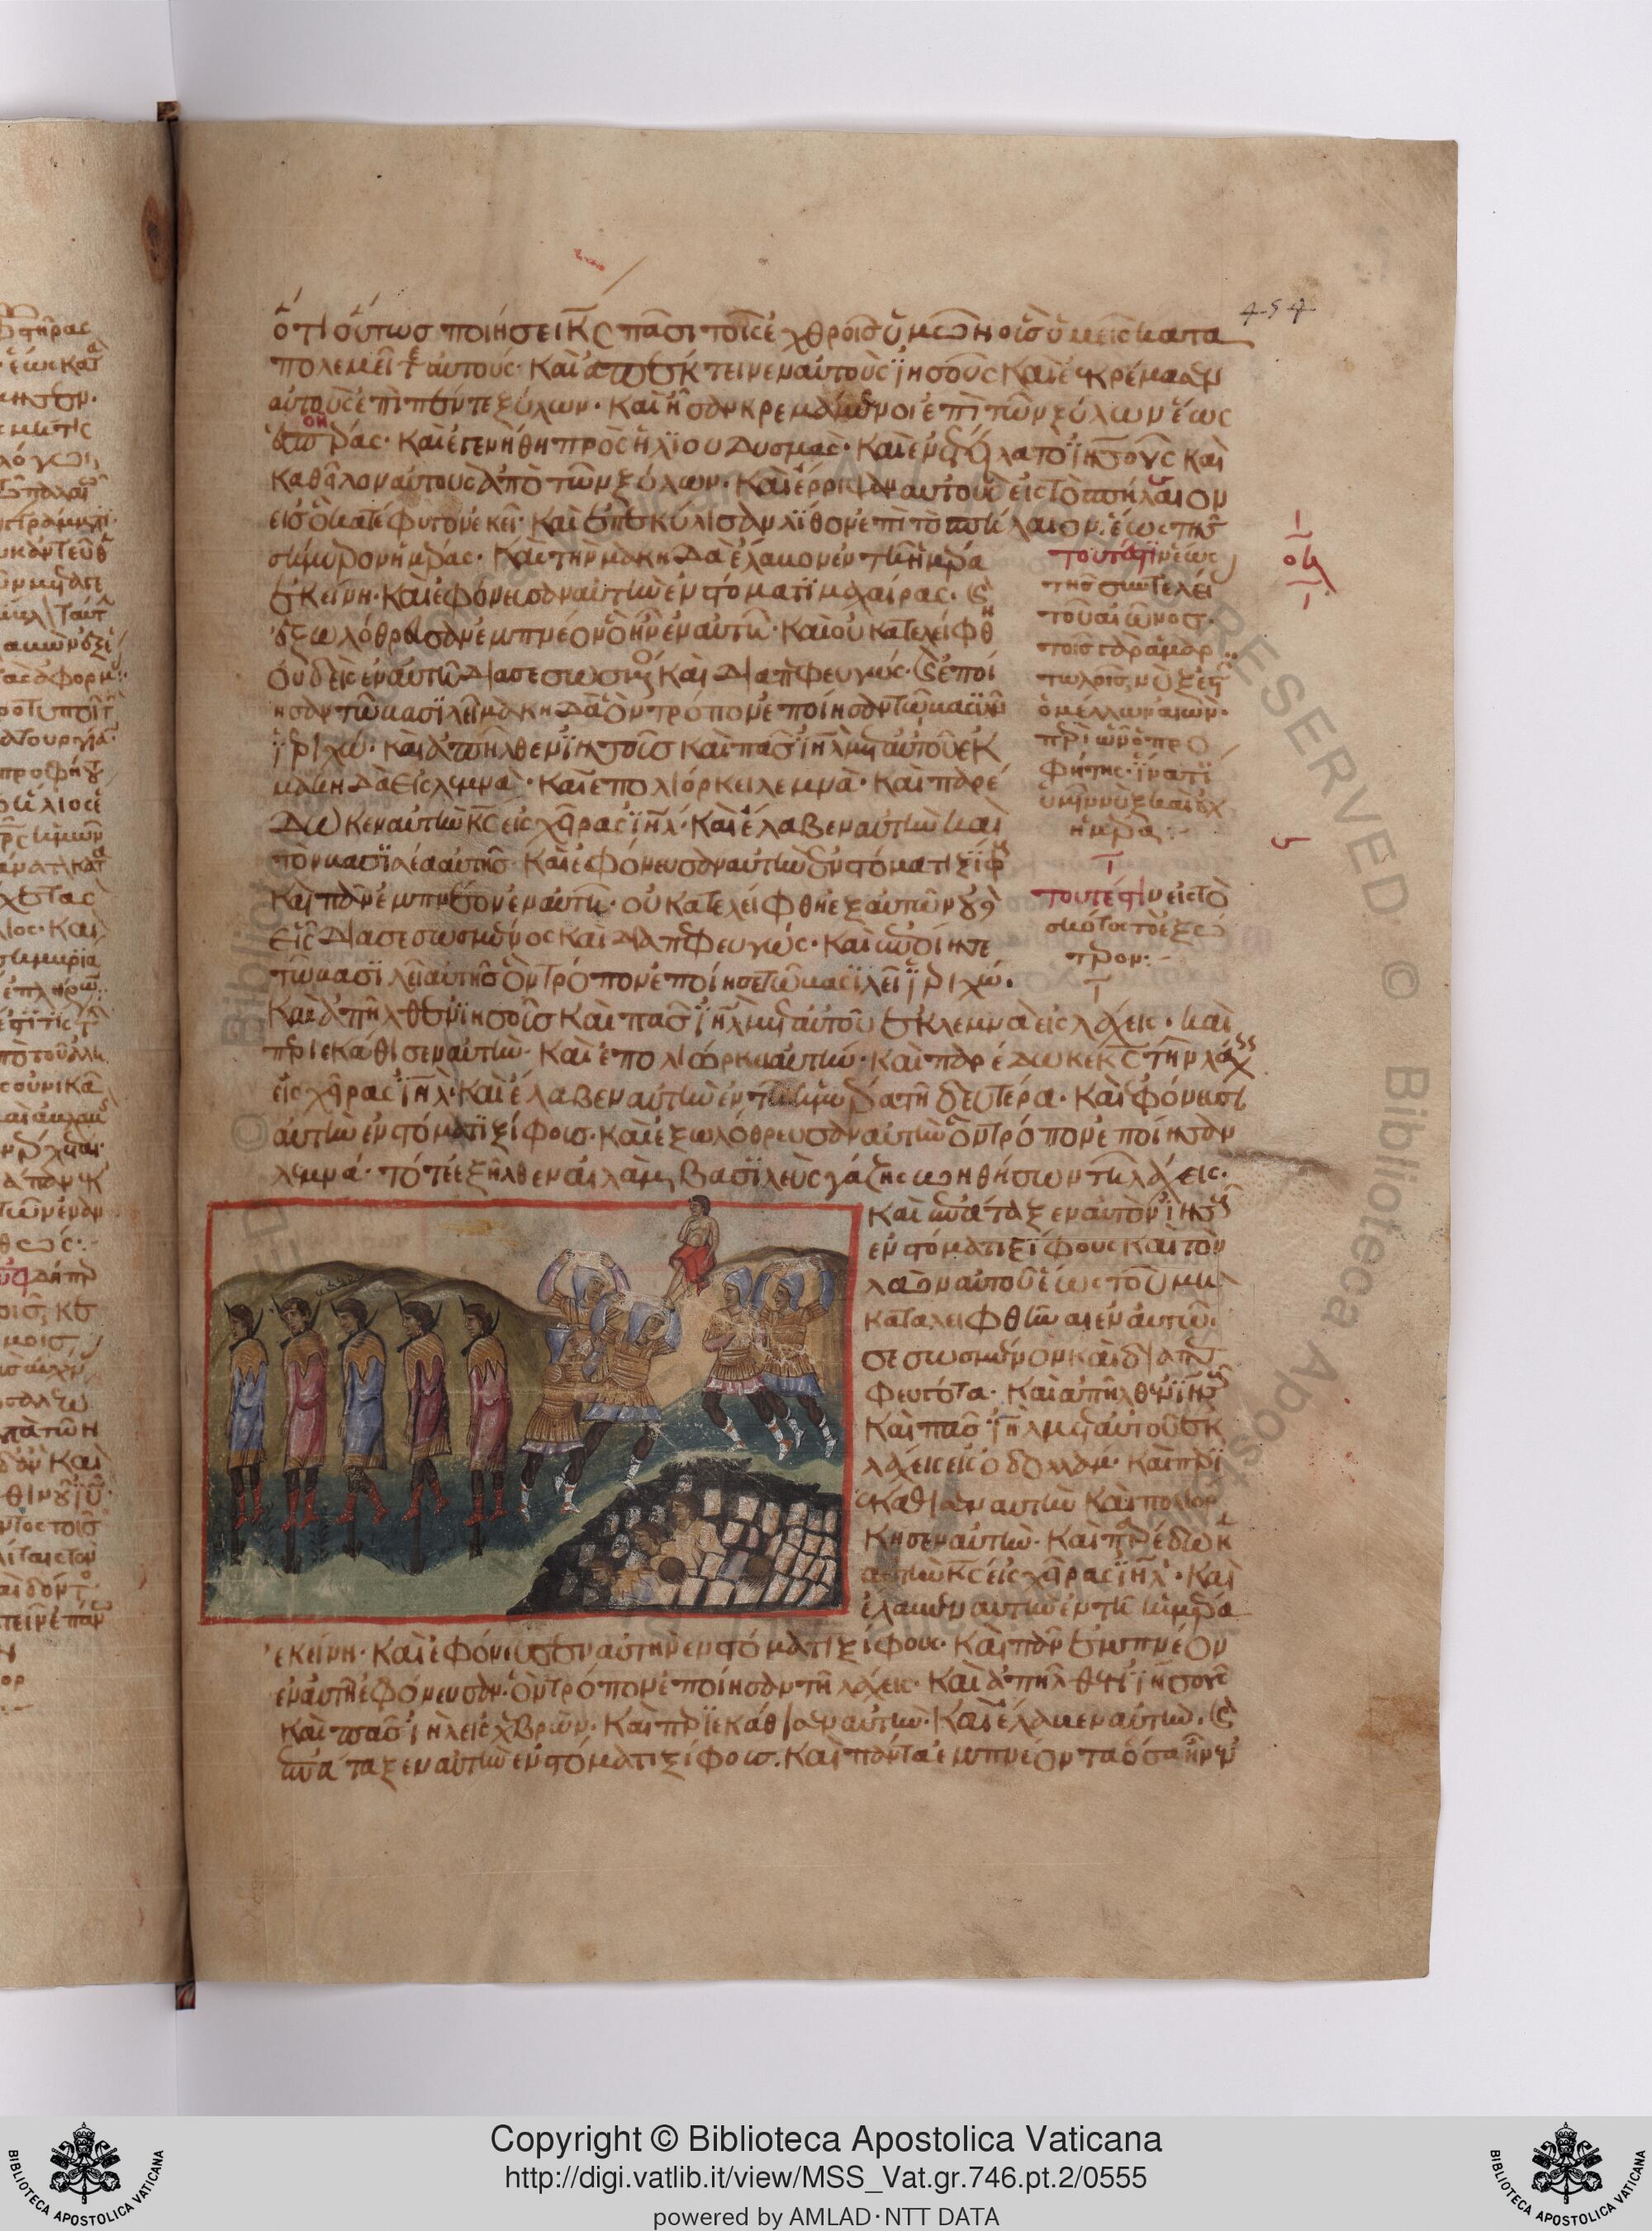 454
ὅτι οὕτως ποιήσει κς πᾶσι τοῖς ἐχθροῖς ὑμῶν οἷς ὑμεῖς κατα
πολεμεῖτε αὐτούς· καὶ ἀπέκτεινεν αὐτοὺς ἰησοῦς καὶ ἐκρέμασεν
αὐτοὺς ἐπὶ πέντε ξύλων· καὶ ἦσαν κρεμάμενοι ἐπὶ τῶν ξύλων ἕως
ἑσπέρας· καὶ ἐγενήθη πρὸς ἡλίου δυσμὰς· καὶ ἐνετείλατο ἰησοῦς καὶ
καθεῖλον αὐτοὺς ἀπὸ τῶν ξύλων· καὶ ἔρριψαν αὐτοὺς εἰς τὸ σπήλαιον
εἰς ὃ κατέφυγον ἐκεῖ· καὶ ἐπεκύλισαν λίθον ἐπὶ τὸ σπήλαιον ἕως τῆς
σήμερον ἡμέρας· καὶ τὴν μακηδὰ ἔλαβον ἐν τῇ ἡμέρα
ἐκείνη· καὶ ἐφόνευσαν αὐτὴν ἐν στόματι μαχαίρας· καὶ
ἐξωλόθρευσαν ἐμπνέον ὃ ἦν ἐν αὐτῇ· καὶ οὐ κατελείφθη
οὐδεὶς ἐν αὐτῇ διασεσωσμένος καὶ διαπεφευγώς· καὶ ἐποί
ησαν τῷ βασιλεῖ μακηδὰ ὃν τρόπον ἐποίησαν τῷ βασιλεῖ
ἱεριχώ· καὶ ἀπῆλθεν ἰησοῦς καὶ πᾶς ἰηλ μετ αὐτοῦ ἐκ
μακηδὰ εἰς λεμνὰ· καὶ ἐπολιόρκει λεμνὰ· καὶ παρέ
δωκεν αὐτὴν κς εἰς χεῖρας ἰηλ· καὶ ἔλαβεν αὐτὴν καὶ
τὸν βασιλέα αὐτῆς· καὶ ἐφόνευσαν αὐτὴν ἐν στόματι ξίφους
καὶ πᾶν ἐμπνέον ἐν αὐτῇ· οὐ κατελείφθη ἐξ αὐτῶν οὐδ
εἷς διασεσωσμένος καὶ διαπεφευγώς· καὶ ἐποίησε
τῷ βασιλεῖ αὐτῆς ὃν τρόπον ἐποίησε τῷ βασιλεῖ ἱεριχώ.
καὶ ἀπῆλθεν ἰησοῦς καὶ πᾶς ἰηλ μετ αὐτοῦ ἐκ λεμνὰ εἰς λάχεις· καὶ
περιεκάθισεν αὐτὴν· καὶ ἐπολιόρκει αὐτήν· καὶ παρέδωκε κς τὴν λάχεις
εἰς χεῖρας ἰηλ· καὶ ἔλαβεν αὐτὴν ἐν τῇ ἡμέρα τῇ δευτέρα· καὶ ἐφόνευσε
αὐτὴν ἐν στόματι ξίφους· καὶ ἐξωλόθρευσαν αὐτὴν ὃν τρόπον ἐποίησαν
λεμνά· τότε ἐξῆλθεν αἰλὰμ βασιλεὺς γάζης βοηθήσων τῇ λάχεις·
καὶ ἐπάταξεν αὐτὸν ἰησοῦς
ἐν στόματι ξίφους καὶ τὸν
λαὸν αὐτοῦ ἕως τοῦ μὴ
καταλειφθῆναι ἐν αὐτῷ
σεσωσμένον καὶ διαπε
φευγότα· καὶ ἀπῆλθεν ἰησοῦς
καὶ πᾶς ἰηλ μετ αὐτοῦ ἐκ
λάχεις εἰς ὀδολλάμ· καὶ περι
εκάθισεν αὐτὴν καὶ ἐπολιόρ
κησεν αὐτὴν· καὶ παρέδωκεν
αὐτὴν κς εἰς χεῖρας ἰηλ· καὶ
ἔλαβεν αὐτὴν ἐν τῇ ἡμέρα
ἐκείνη· καὶ ἐφόνευσεν αὐτὴν ἐν στόματι ξίφους· καὶ πᾶν ἐμπνέον
ἐν αὐτῇ ἐφόνευσαν· ὃν τρόπον ἐποίησαν τῇ λάχεις· καὶ ἀπῆλθεν ἰησοῦς
καὶ πᾶς ἰηλ εἰς χεβρών· καὶ περιεκάθισεν αὐτὴν· καὶ ἔλαβεν αὐτὴν· καὶ
ἐπάταξεν αὐτὴν ἐν στόματι ξίφους· καὶ πάντα ἐμπνέοντα ὅσα ἦν ἐν
τουτέστιν ἕως
τῆς συντελεί
τοῦ αἰῶνος·
ὁ μέλλων αἰών·
περὶ ὧν ὁ προ
φήτης· ἵνα τί
ὑμῖν νὺξ καὶ οὐχ
ἡμέρα:
τουτέστιν εἰς τὸ
σκότος τὸ ἐξώ
τερον:
Copyright © Biblioteca Apostolica Vaticana
http://digi.vatlib.it/view/MSS_Vat.gr.746.pt.2/0555
powered by AMLAD·NTT DATA
BIBLIOTECA APOSTOLICA VATICANA
BIBLIOTECA APOSTOLICA VATICANA